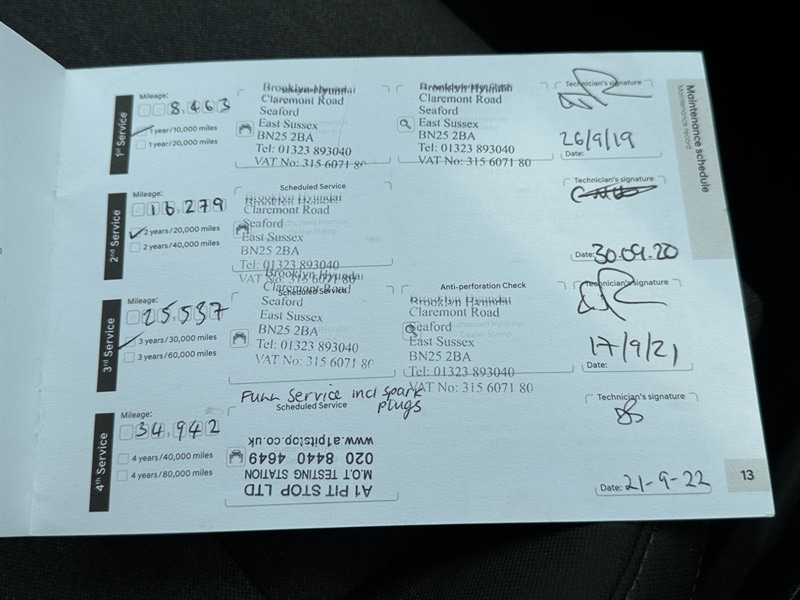 Maintenance schedule
Maintenance record
1st Service
Mileage:
8,463
1 year/10,000 miles
1 year/20,000 miles
Brooklyn Hyundai
Claremont Road
Seaford
East Sussex
BN25 2BA
Tel: 01323 893040
VAT No: 315 6071 80
Brooklyn Hyundai
Claremont Road
Seaford
East Sussex
BN25 2BA
Tel: 01323 893040
VAT No: 315 6071 80
Technician's signature
26/9/19
Date:
2nd Service
Mileage:
16,279
2 years/20,000 miles
2 years/40,000 miles
Scheduled Service
Brooklyn Hyundai
Claremont Road
Seaford
East Sussex
BN25 2BA
Tel: 01323 893040
VAT No: 315 6071 80
Technician's signature
Date: 30.09.20
3rd Service
Mileage:
25,537
3 years/30,000 miles
3 years/60,000 miles
Brooklyn Hyundai
Scheduled Service
Claremont Road
Seaford
East Sussex
BN25 2BA
Tel: 01323 893040
VAT No: 315 6071 80
Anti-perforation Check
Brooklyn Hyundai
Claremont Road
Seaford
East Sussex
BN25 2BA
Tel: 01323 893040
VAT No: 315 6071 80
Technician's signature
17/9/21
Date:
4th Service
Mileage:
34,942
4 years/40,000 miles
4 years/80,000 miles
Full Service incl spark
plugs
Scheduled Service
A1 PIT STOP LTD
M.O.T TESTING STATION
020 8440 4649
www.a1pitstop.co.uk
Technician's signature
Date: 21-9-22
13